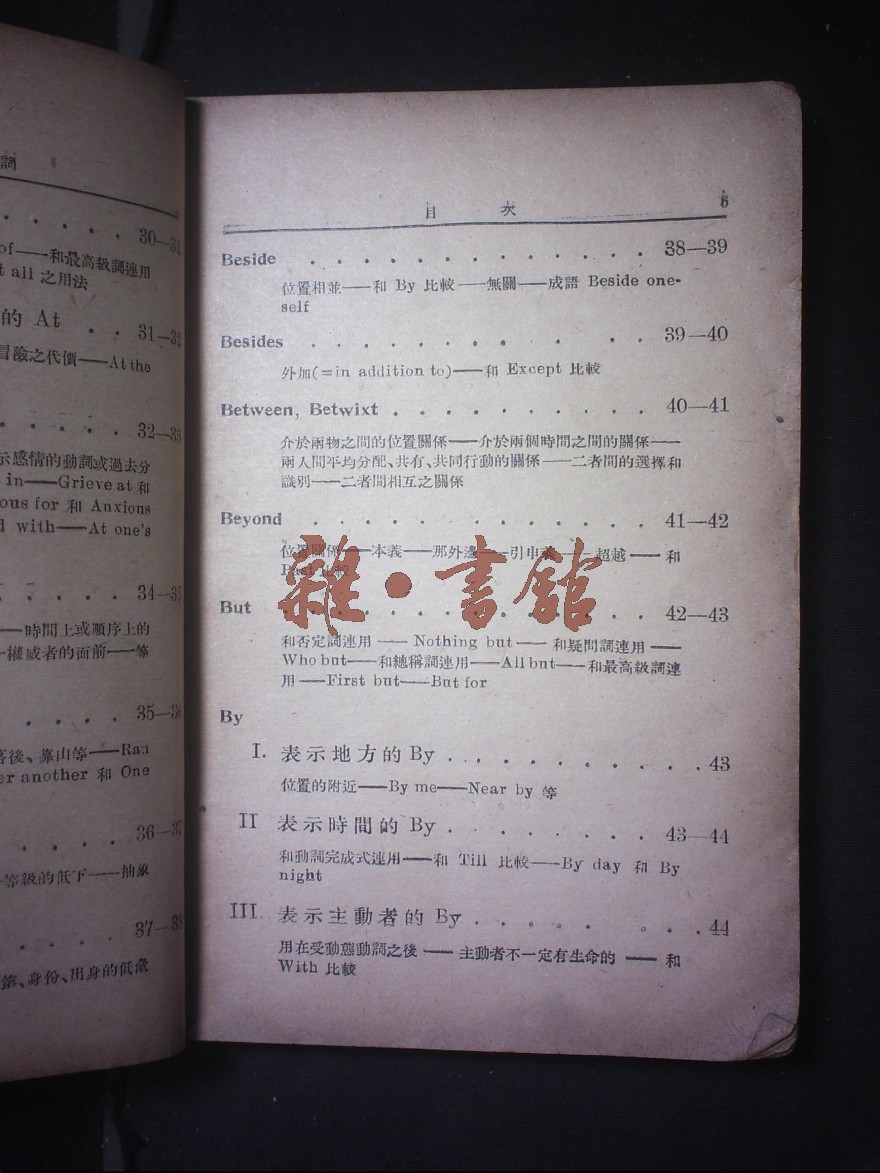 詞
30—31
of——和最高級詞連用
t all 之用法
的 At . . 31—32
冒險之代價——At the
32—33
示感情的動詞或過去分
in——Grieve at 和
ous for 和 Anxious
d with——At one's
34—35
——時間上或順序上的
權威者的面前——等
35—36
客後、靠山等——Ran
er another 和 One
36—37
等級的低下——抽象
37—38
第、身份、出身的低微
目 次 5
Beside . . . . . . . . . . . . . . 38—39
位置相並——和 By 比較——無關——成語 Beside one-
self
Besides . . . . . . . . . . . . . 39—40
外加(=in addition to)——和 Except 比較
Between, Betwixt . . . . . . . . . . . 40—41
介於兩物之間的位置關係——介於兩個時間之間的關係——
兩人間平均分配、共有、共同行動的關係——二者間的選擇和
識別——二者間相互之關係
Beyond . . . . . . . . . . . . . 41—42
位置關係——本義——那外邊——引申義——超越——和
Past 比較
But . . . . . . . . . . . . . 42—43
和否定詞連用——Nothing but——和疑問詞連用——
Who but——和總稱詞連用——All but——和最高級詞連
用——First but——But for
By
I. 表示地方的 By . . . . . . . . . . . 43
位置的附近——By me——Near by 等
II 表示時間的 By . . . . . . . . . 43—44
和動詞完成式連用——和 Till 比較——By day 和 By
night
III. 表示主動者的 By . . . . . . . . . 44
用在受動態動詞之後——主動者不一定有生命的——和
With 比較
雜·書舘